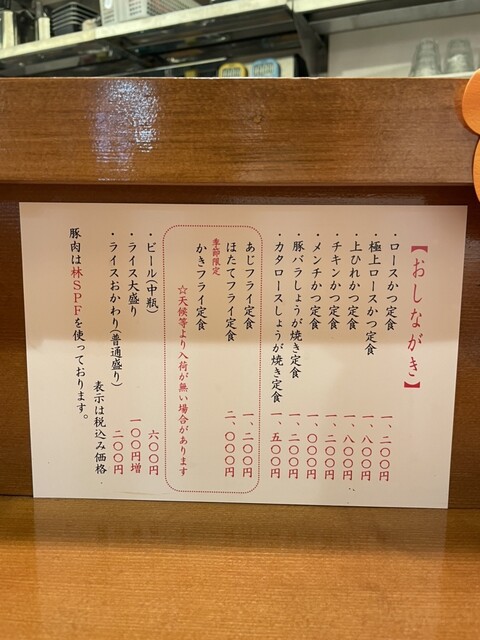 【おしながき】
・ロースかつ定食 一、二〇〇円
・極上ロースかつ定食 一、八〇〇円
・上ひれかつ定食 一、八〇〇円
・チキンかつ定食 一、二〇〇円
・メンチかつ定食 一、〇〇〇円
・豚バラしょうが焼き定食 一、二〇〇円
・カタロースしょうが焼き定食 一、五〇〇円
あじフライ定食 一、二〇〇円
ほたてフライ定食 二、〇〇〇円
季節限定
かきフライ定食
☆天候等より入荷が無い場合があります
・ビール(中瓶) 六〇〇円
・ライス大盛り 一〇〇円増
・ライスおかわり(普通盛り) 二〇〇円
表示は税込み価格
豚肉は林SPFを使っております。